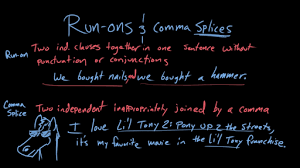 Run-ons & Comma Splices
Run-on Two ind. clauses together in one sentence without
punctuation or conjunctions
We bought nails, and we bought a hammer.
Comma
Splice Two independent inappropriately joined by a comma
I love Li'l Tony 2: Pony Up 2 the Streets,
it's my favorite movie in the Li'l Tony franchise.